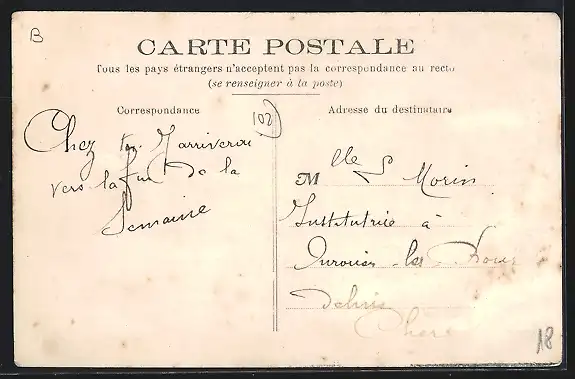 B
CARTE POSTALE
Tous les pays étrangers n'acceptent pas la correspondance au recto
(se renseigner à la poste)
Correspondance
102
Adresse du destinataire
Chez J'arriverai
vers la fin de la
Semaine
M lle Morin
Institutrice à
Ourouer les
Cher
18